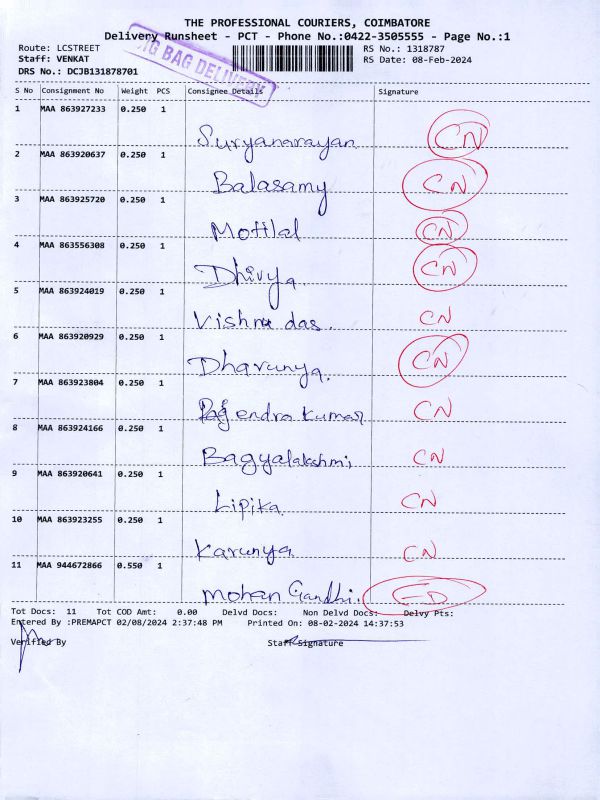 THE PROFESSIONAL COURIERS, COIMBATORE
Delivery Runsheet - PCT - Phone No.:0422-3505555 - Page No.:1
Route: LCSTREET RS No.: 1318787
Staff: VENKAT RS Date: 08-Feb-2024
DRS No.: DCJB131878701
BIG BAG DELIVERY
S No Consignment No Weight PCS Consignee Details Signature
1 MAA 863927233 0.250 1
Suryanarayan CN
2 MAA 863920637 0.250 1
Balasamy CN
3 MAA 863925720 0.250 1
Motilal CN
4 MAA 863556308 0.250 1
Dhivya CN
5 MAA 863924019 0.250 1
Vishnu das. CN
6 MAA 863920929 0.250 1
Dharunya. CN
7 MAA 863923804 0.250 1
Rajendra kumar CN
8 MAA 863924166 0.250 1
Bagyalakshmi CN
9 MAA 863920641 0.250 1
Lipika CN
10 MAA 863923255 0.250 1
Karunya CN
11 MAA 944672866 0.550 1
Mohan Gandhi. ED
Tot Docs: 11 Tot COD Amt: 0.00 Delvd Docs: Non Delvd Docs: Delvy Pts:
Entered By :PREMAPCT 02/08/2024 2:37:48 PM Printed On: 08-02-2024 14:37:53
Verified By Staff Signature